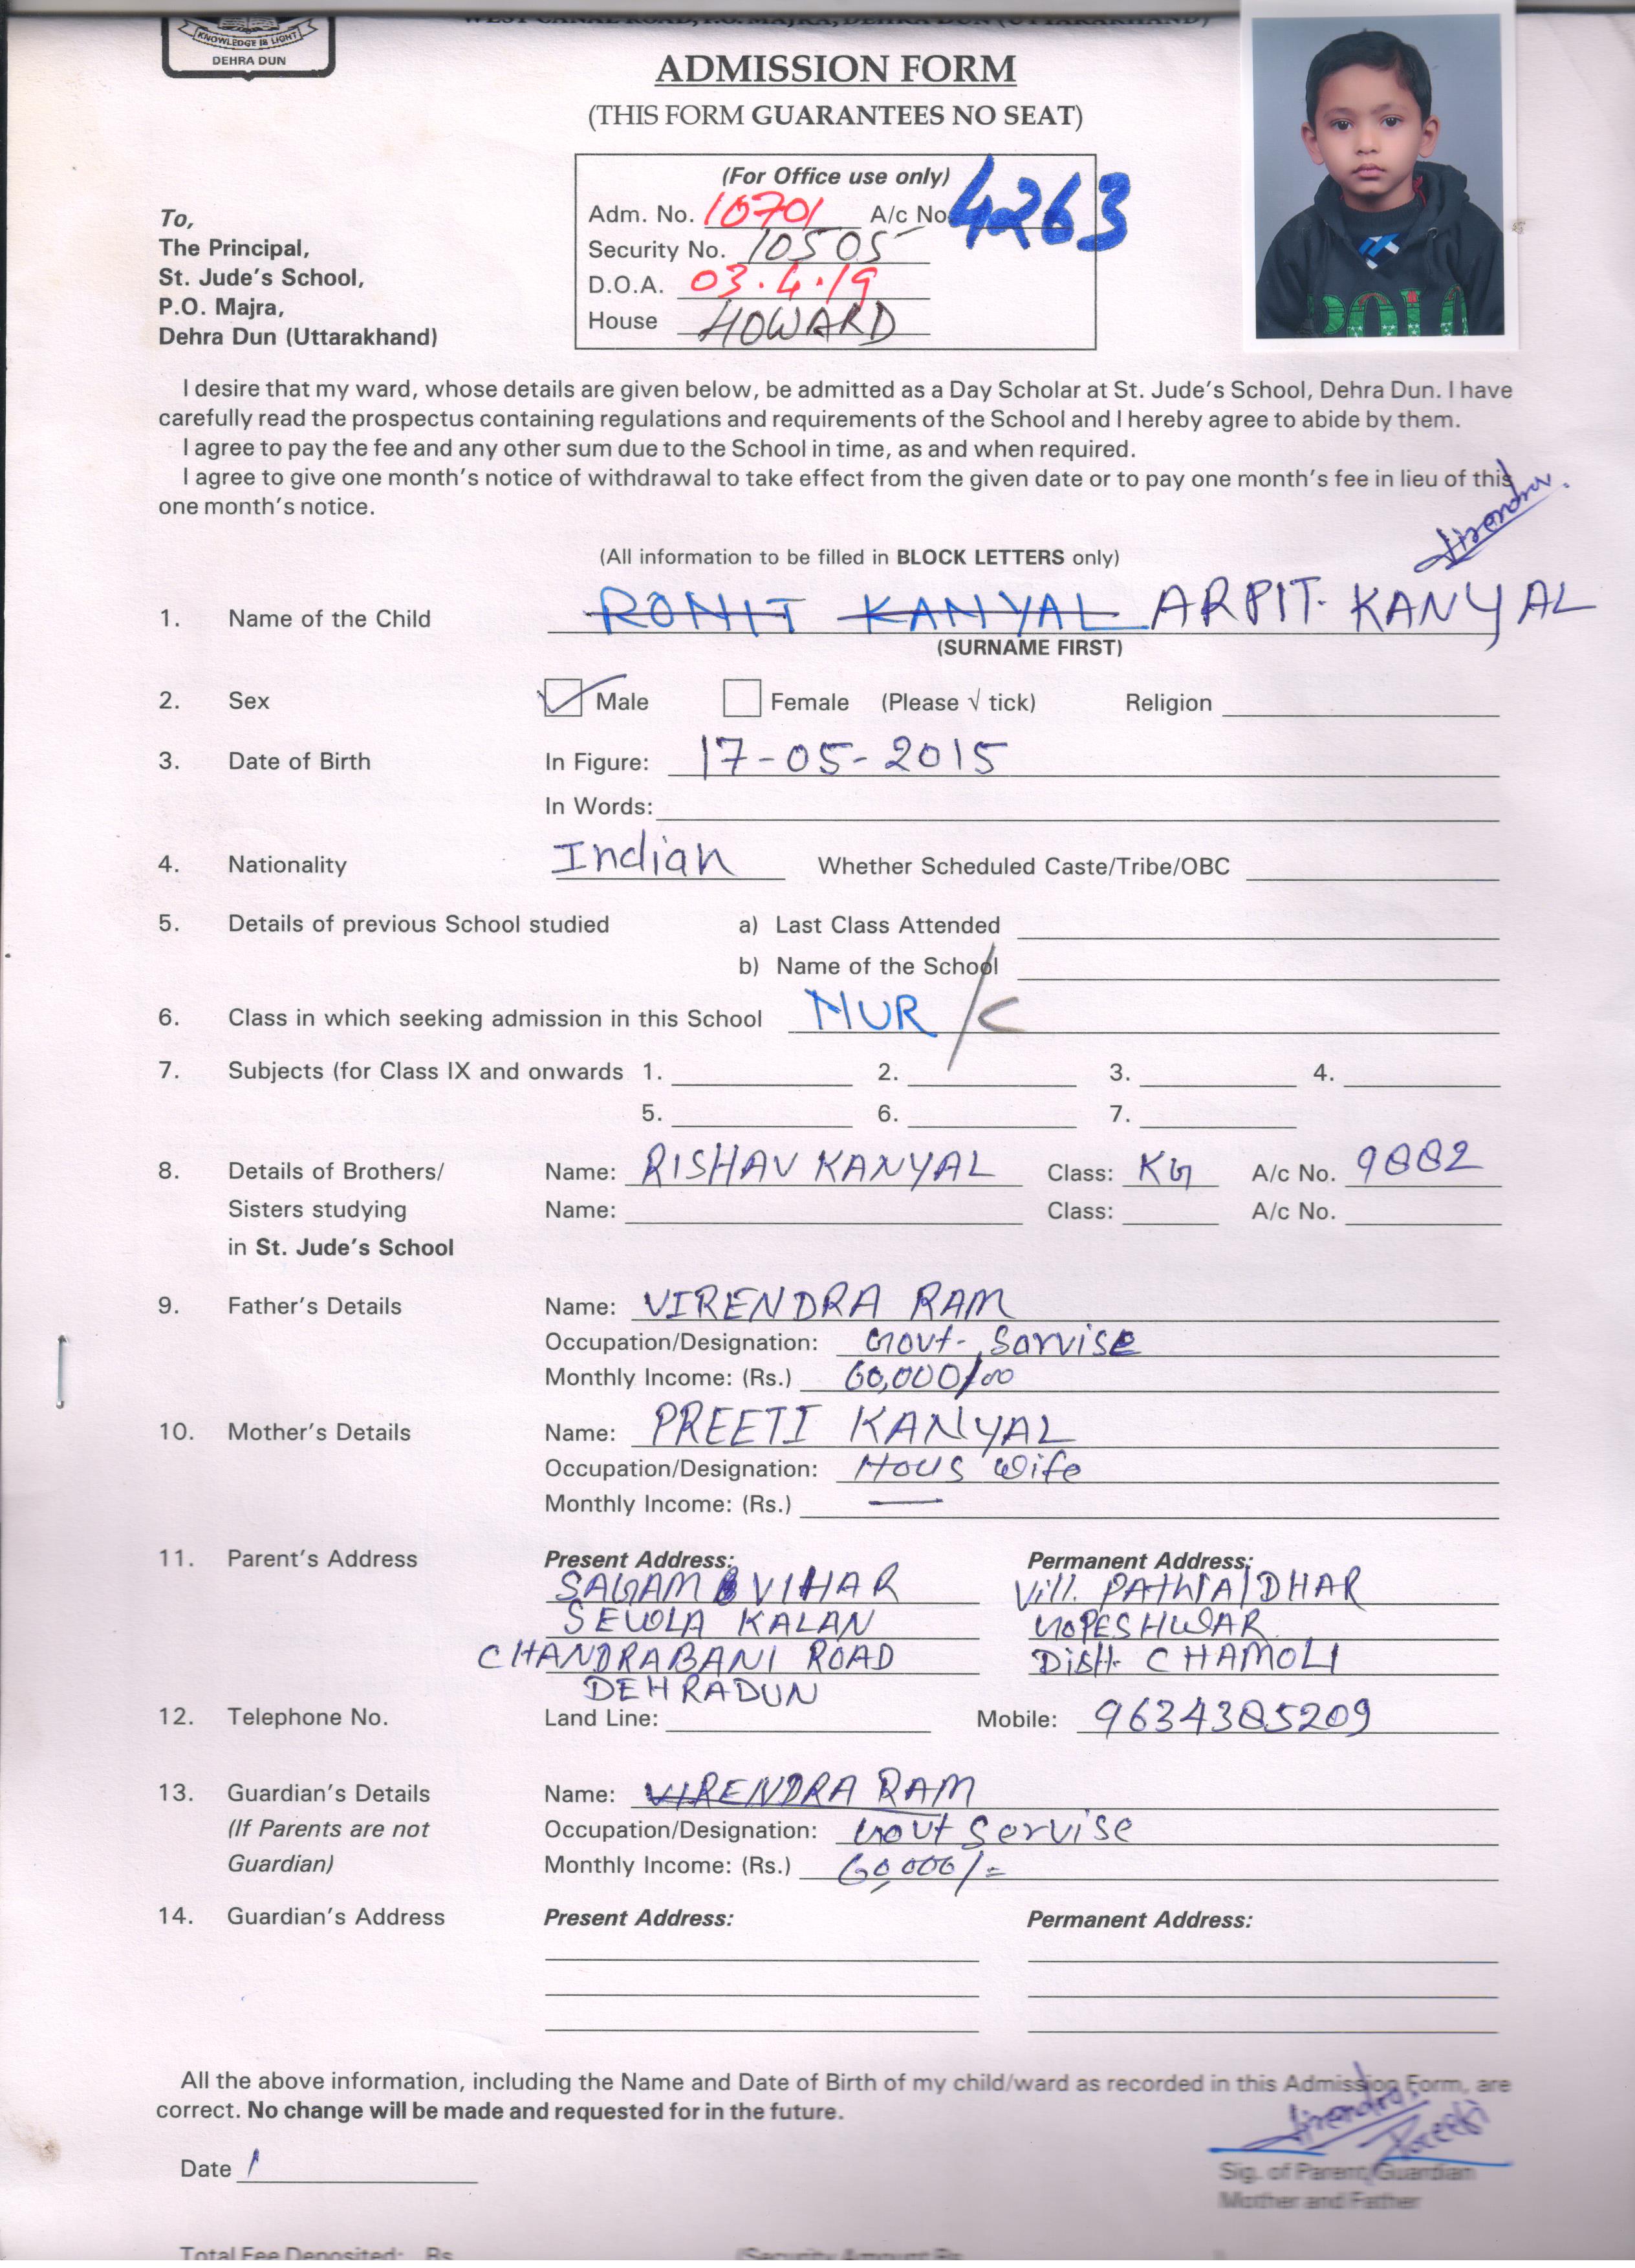 WEST CANAL ROAD, P.O. MAJRA, DEHRA DUN (UTTARAKHAND)
KNOWLEDGE IS LIGHT
DEHRA DUN
ADMISSION FORM
(THIS FORM GUARANTEES NO SEAT)
(For Office use only)
Adm. No. 10701 A/c No. 4263
Security No. 10505
D.O.A. 03.4.19
House HOWARD
To,
The Principal,
St. Jude's School,
P.O. Majra,
Dehra Dun (Uttarakhand)
POLO
I desire that my ward, whose details are given below, be admitted as a Day Scholar at St. Jude's School, Dehra Dun. I have
carefully read the prospectus containing regulations and requirements of the School and I hereby agree to abide by them.
I agree to pay the fee and any other sum due to the School in time, as and when required.
I agree to give one month's notice of withdrawal to take effect from the given date or to pay one month's fee in lieu of this
one month's notice.
Virendra
(All information to be filled in BLOCK LETTERS only)
1. Name of the Child ROHIT KANYAL ARPIT KANYAL
(SURNAME FIRST)
2. Sex Male Female (Please √ tick) Religion
3. Date of Birth In Figure: 17-05-2015
In Words:
4. Nationality Indian Whether Scheduled Caste/Tribe/OBC
5. Details of previous School studied a) Last Class Attended
b) Name of the School
6. Class in which seeking admission in this School NUR / C
7. Subjects (for Class IX and onwards 1. 2. 3. 4.
5. 6. 7.
8. Details of Brothers/ Name: RISHAV KANYAL Class: KG A/c No. 9882
Sisters studying Name: Class: A/c No.
in St. Jude's School
9. Father's Details Name: VIRENDRA RAM
Occupation/Designation: Govt- Sarvise
Monthly Income: (Rs.) 60,000/00
10. Mother's Details Name: PREETI KANYAL
Occupation/Designation: Hous Wife
Monthly Income: (Rs.) —
11. Parent's Address Present Address: Permanent Address:
SAGAM VIHAR Vill. PATHIALDHAR
SEWLA KALAN GOPESHWAR
CHANDRABANI ROAD Distt. CHAMOLI
DEHRADUN
12. Telephone No. Land Line: Mobile: 9634385209
13. Guardian's Details Name: VIRENDRA RAM
(If Parents are not Occupation/Designation: Govt Servise
Guardian) Monthly Income: (Rs.) 60,000/=
14. Guardian's Address Present Address: Permanent Address:
All the above information, including the Name and Date of Birth of my child/ward as recorded in this Admission Form, are
correct. No change will be made and requested for in the future.
Virendra Preeti
Date
Sig. of Parent/Guardian
Mother and Father
Total Fee Deposited: Rs. (Security Amount Rs.